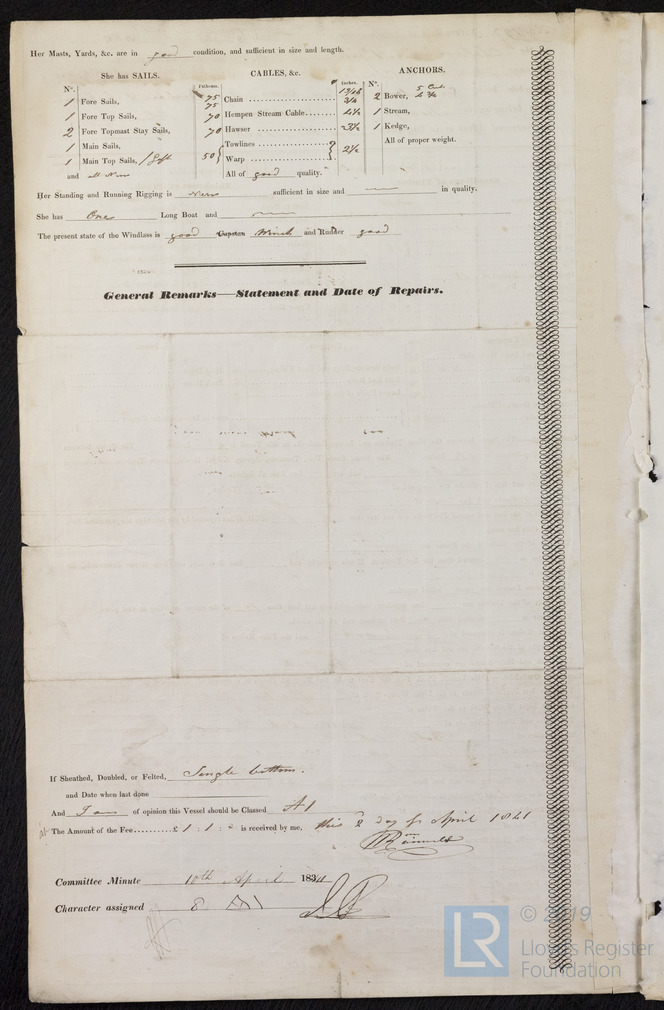 Her Masts, Yards, &c. are in good condition, and sufficient in size and length.
She has SAILS.
CABLES, &c.
ANCHORS.
N°.
Fathoms.
Inches.
N°.
1 Fore Sails,
75 Chain
75
13/16
3/4
2 Bower,
5 Cwt
1 Fore Top Sails,
70 Hempen Stream Cable
1 Stream,
2 Fore Topmast Stay Sails,
70 Hawser
1 Kedge,
1 Main Sails,
Towlines
50
2½
All of proper weight.
1 Main Top Sails,
Warp
and all New
All of good quality.
Her Standing and Running Rigging is New sufficient in size and in quality.
She has One Long Boat and
The present state of the Windlass is good Capstan Winch and Rudder good
General Remarks—Statement and Date of Repairs.
If Sheathed, Doubled, or Felted, Single bottom.
and Date when last done
And I am of opinion this Vessel should be Classed A1
The Amount of the Fee.......£ 1 : 1 : is received by me, this 2 day of April 1841
Committee Minute 10th April 1841
Character assigned 8 A1
© 2019
LR
Lloyd's Register
Foundation